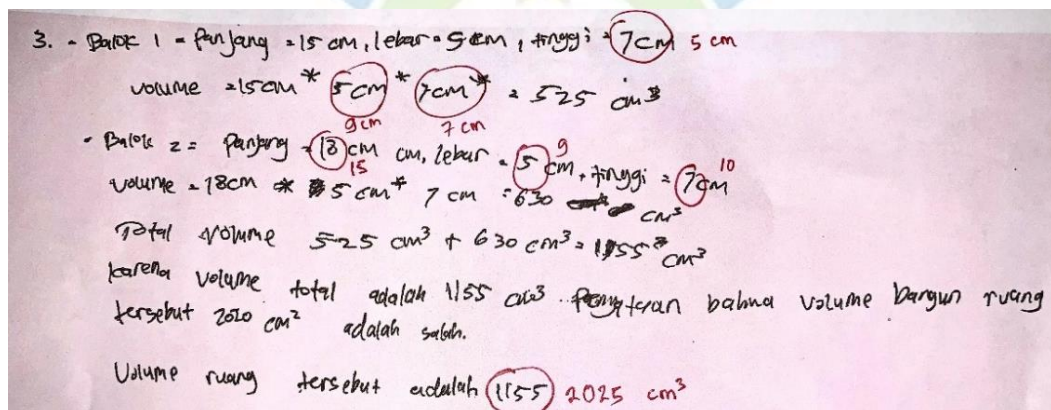 3. - Balok 1 = Panjang = 15 cm, lebar = 5 cm, tinggi = 7cm 5 cm
volume = 15cm * 5 cm * 7cm = 525 cm3
9 cm 7 cm
- Balok 2 = Panjang = 18 cm cm, lebar = 5 cm, tinggi = 7cm
15 9 10
volume = 18cm * 5 cm * 7 cm = 630 cm3
Total volume 525 cm3 + 630 cm3 = 1155 cm3
karena volume total adalah 1155 cm3 bahwa volume bangun ruang
tersebut 2020 cm2 adalah salah.
Volume ruang tersebut adalah 1155 2025 cm3